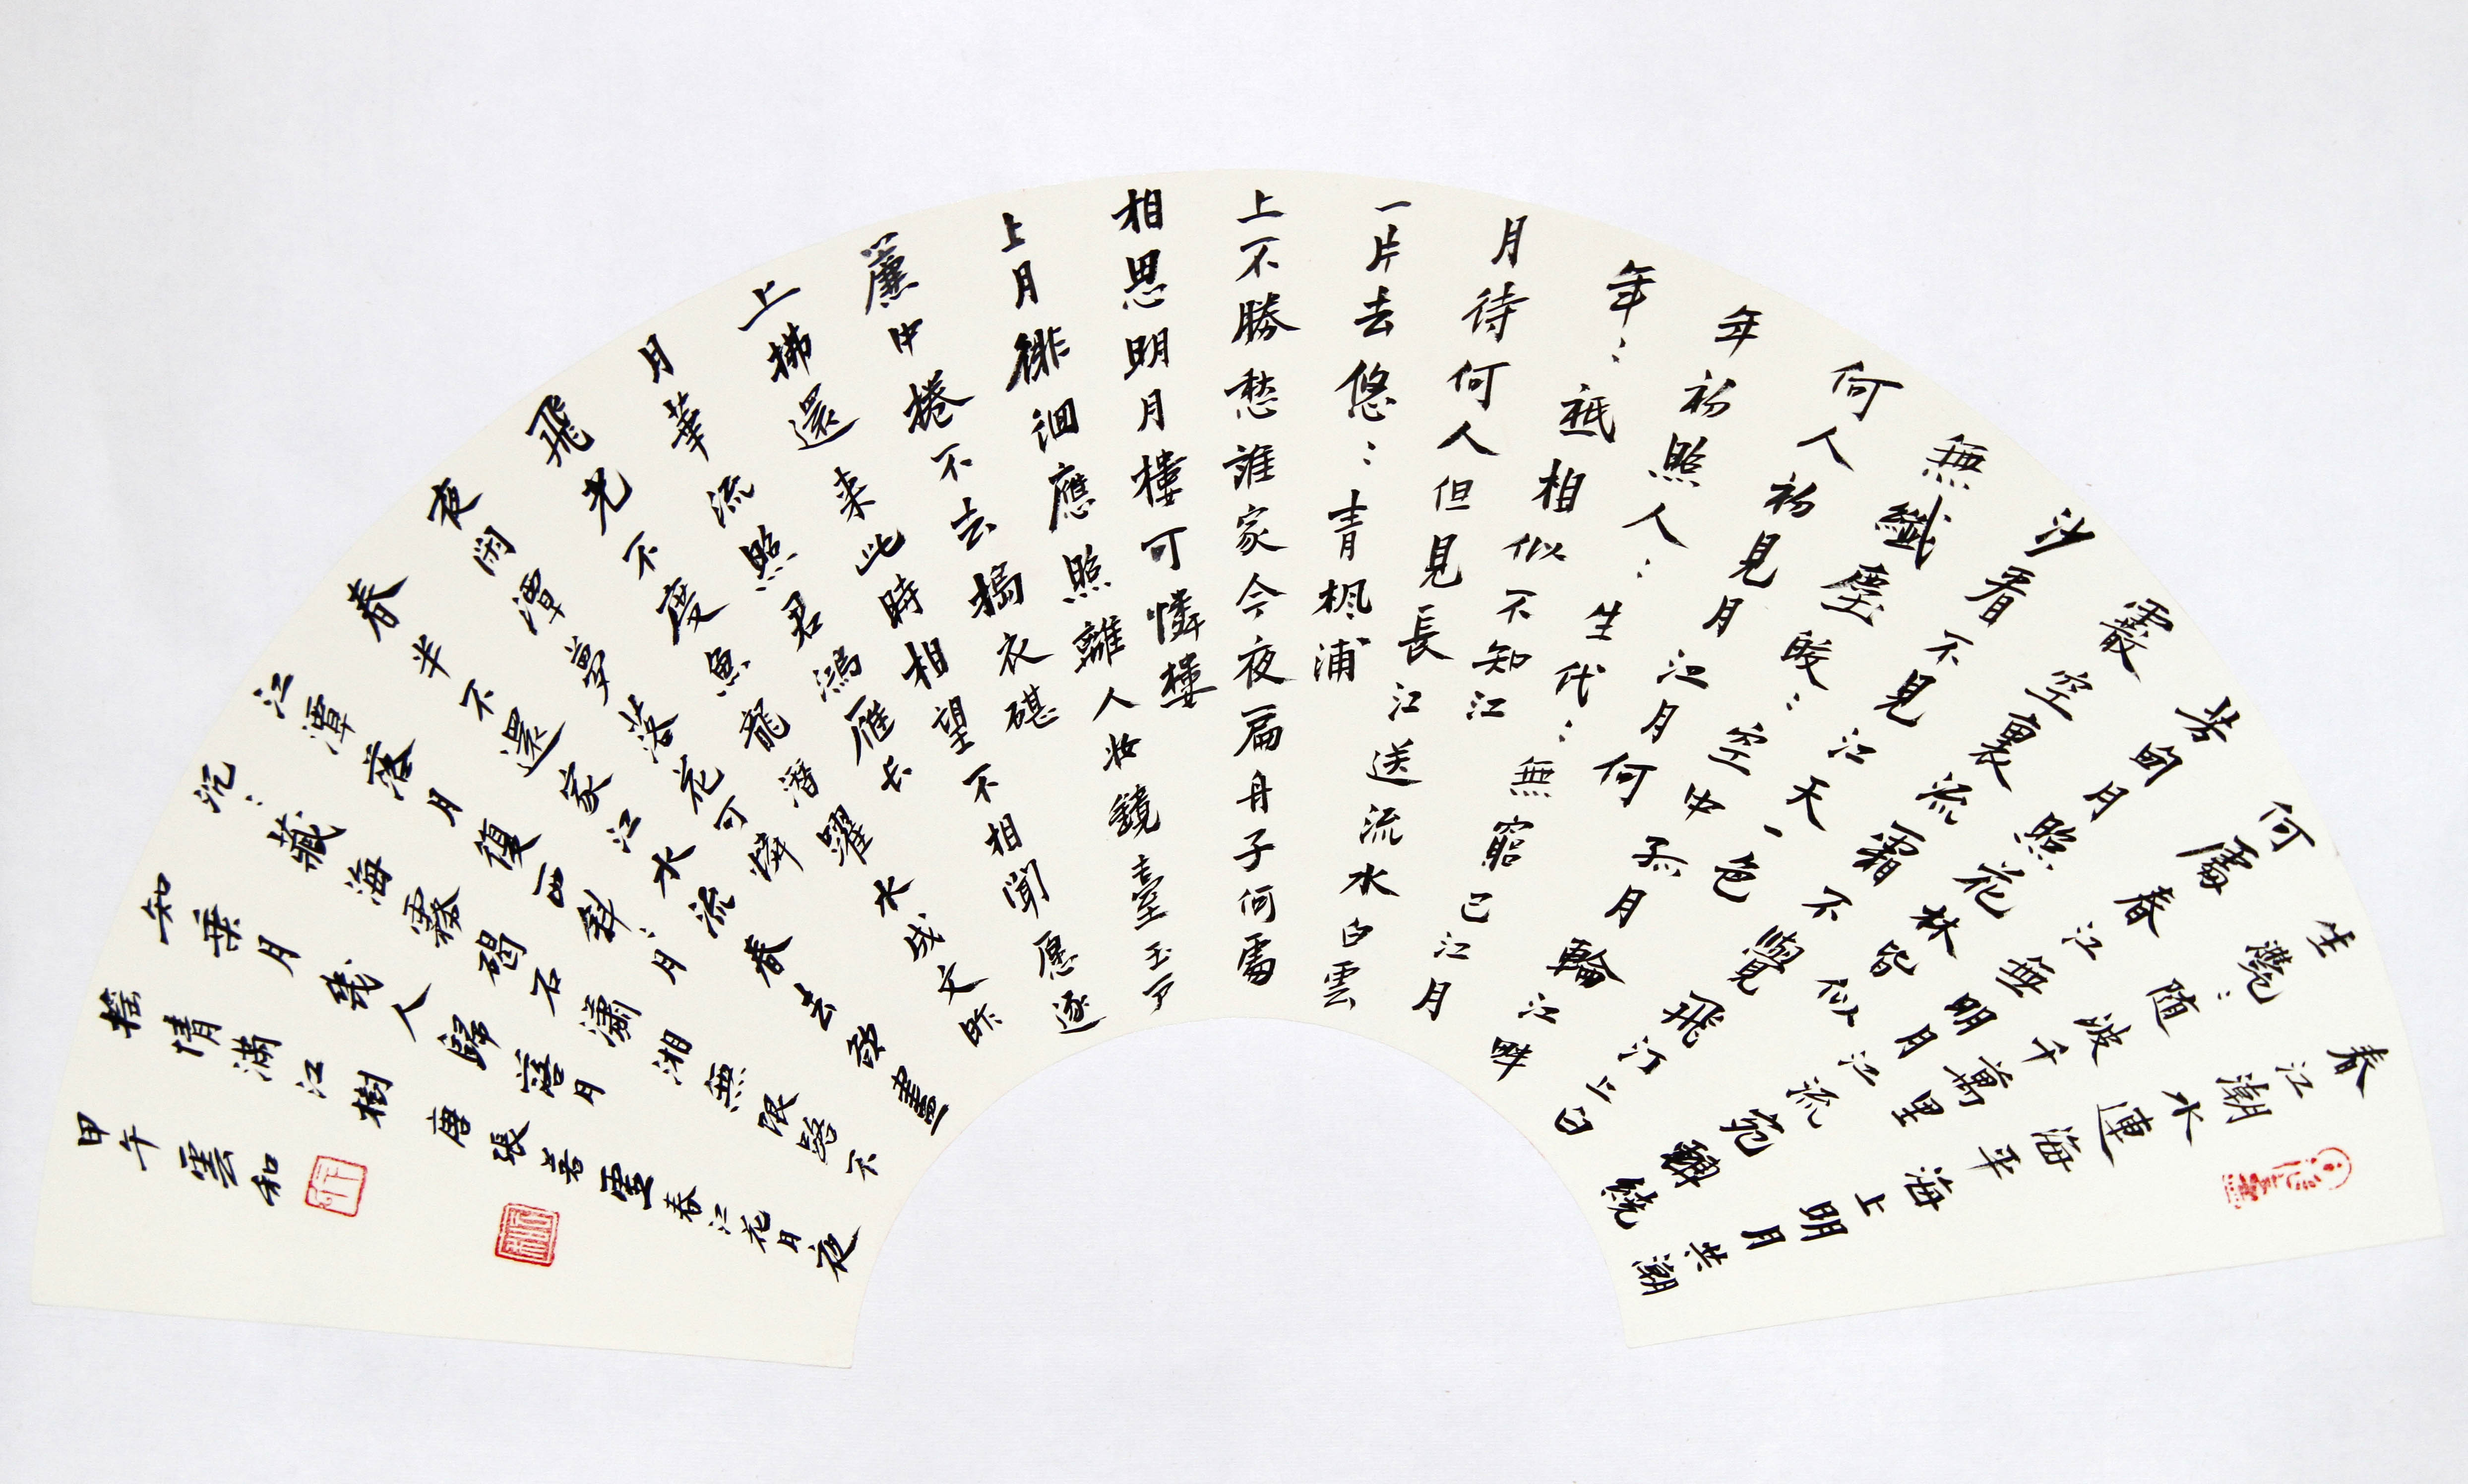 春江潮水連海平海上明月共潮
生灧:随波千萬里
何處春江無月明江流宛轉繞
芳甸月照花林皆似
霰空裏流霜不覺飛汀上白
沙看不見江天一色
無纖塵皎:空中孤月輪江畔
何人初見月江月何
年初照人:生代:無窮已江月
年:祗相似不知江
月待何人但見長江送流水白雲
一片去悠:青楓浦
上不勝愁誰家今夜扁舟子何處
相思明月樓可憐樓
上月徘徊應照離人妝鏡臺玉戶
簾中捲不去搗衣碪
上拂還来此時相望不相聞愿逐
月華流照君鴻雁长
飛光不度魚龍潜躍水成文昨
夜閑潭夢落花可憐
春半不還家江水流春去欲盡
江潭落月復西斜:月
沉:藏海霧碣石瀟湘無限路不
知乗月幾人歸落月
搖情滿江樹 唐張若虛春江花月夜
甲午雲和